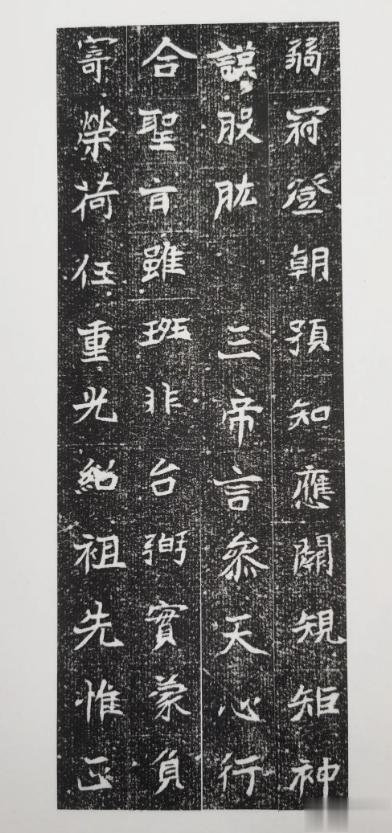 弱冠登朝預知應關規矩神
謨股肱 三帝言叅天心行
合聖旨雖班非台弼實蒙負
寄榮荷任重光紹祖先惟正